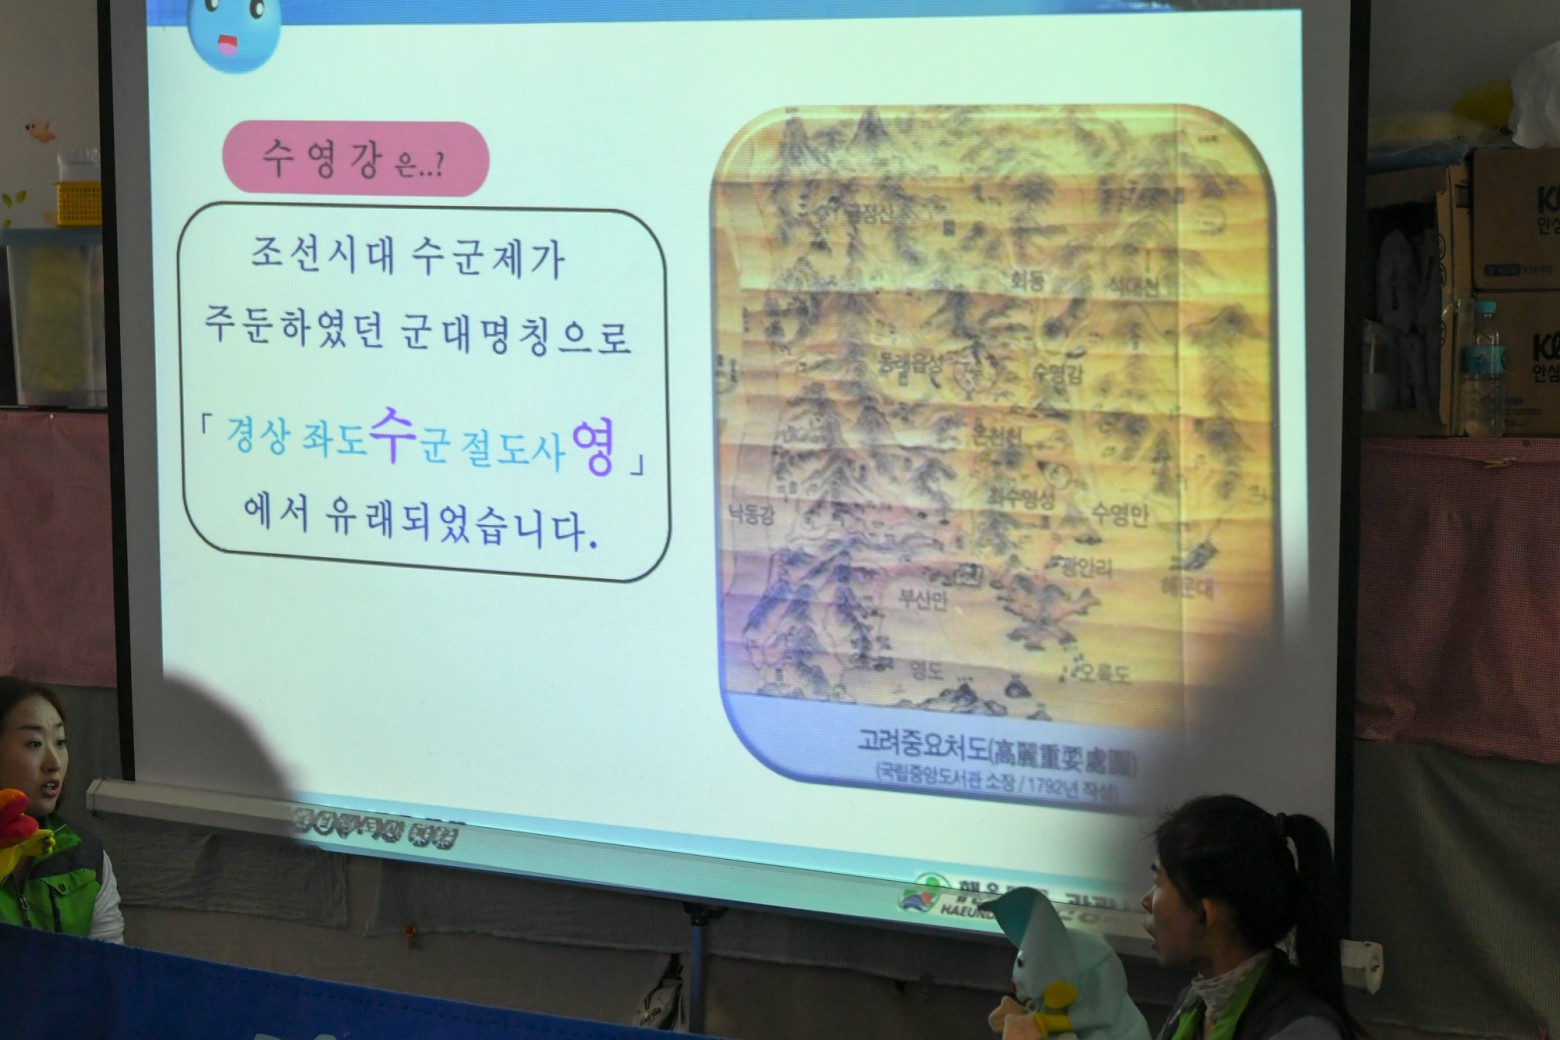 수영강은..?
조선시대 수군제가
주둔하였던 군대명칭으로
「경상 좌도수군 절도사영」
에서 유래되었습니다.
금정산
회동
석대천
동래읍성
수영강
온천천
좌수영성
수영만
낙동강
광안리
해운대
부산만
영도
오륙도
고려중요처도(高麗重要處圖)
(국립중앙도서관 소장 / 1792년 작성)
안심
안심